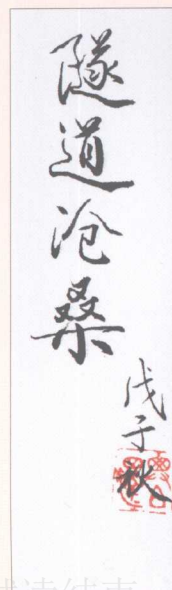 隧道沧桑
戊子秋